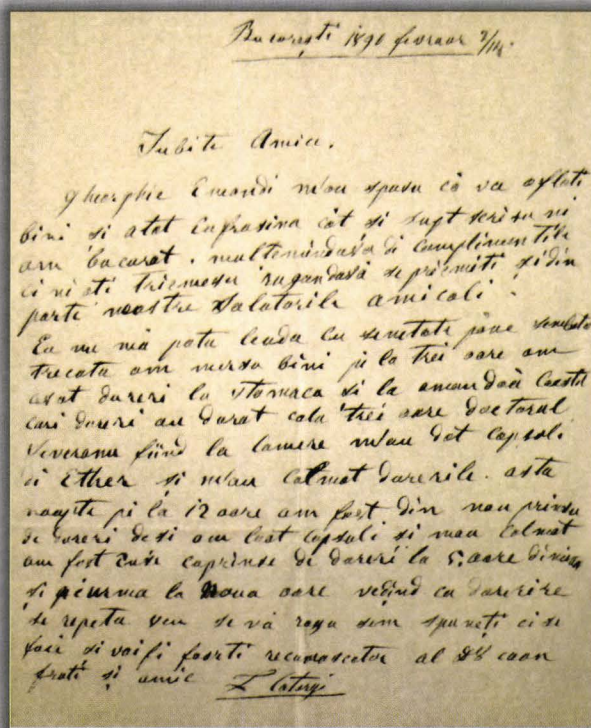 București 1890 fevruar 2/14.
Iubite Amice.
Gheorghie Emandi m'au spusu că va aflati
bini si atat Eufrosina cât si supt scrisu ni
am bucurat. multemindúvă di complimentile
ci ni ati triemesu rugandúvă se priemiti si din
parte noastre salutorile amicali.
Eu nu mă potu leuda cu senetate păne sembata
trecuta am mersu bini pi la trei oare am
avut dureri la stomacu si la amandoă coasti
cari dureri au durat cata trei oare doctorul
Severeanu fiind la Camere m'au dat capsoli
di Ether si m'au calmat durerile. asta
noapte pi la 12 oare am fost din nou prinsu
de dureri desi am luat capsuli si mau colmat
am fost euse coprinse de dureri la 5. oare dimin
si pi urma la noua oare veḑind ca durerire
se repeta veu se vă rogu sem spuneți ci se
faci si voi fi foarti recunoscetor al D8
frati și amic
L Catargi